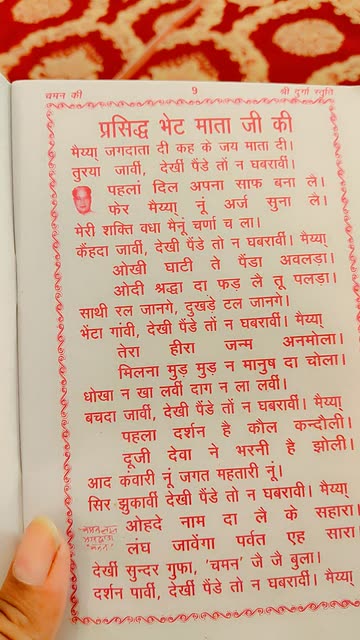 चमन की 9 श्री दुर्गा स्तुति
प्रसिद्ध भेट माता जी की
मैय्या जगदाता दी कह के जय माता दी।
तुरया जावीं, देखीं पैंडे तों न घबरावीं।
पहलां दिल अपना साफ़ बना लै।
फेर मैय्या नूं अर्ज सुना लै।
मेरी शक्ति वधा मैनूं चर्णा च ला।
कैंहदा जावीं, देखी पैंडे तो न घबरावीं। मैय्या
ओखी घाटी ते पैंडा अवलड़ा।
ओदी श्रद्धा दा फड़ लै तू पलड़ा।
साथी रल जानगे, दुखड़े टल जानगे।
भेंटा गांवी, देखी पैंडे तो न घबरावीं। मैय्या
तेरा हीरा जन्म अनमोला।
मिलना मुड़ मुड़ न मानुष दा चोला।
धोखा न खा लवीं दाग न ला लवीं।
बचदा जावीं, देखी पैंडे तों न घबरावीं। मैय्या
पहला दर्शन है कौल कन्दौली।
दूजी देवा ने भरनी है झोली।
आद कंवारी नूं जगत महतारी नूं।
सिर झुकावीं देखी पैंडे तो न घबरावी। मैय्या
ओहदे नाम दा लै के सहारा।
लंघ जावेंगा पर्वत एह सारा
देखीं सुन्दर गुफ़ा, 'चमन' जै जै बुला।
दर्शन पावीं, देखीं पैंडे तों न घबरावीं। मैय्या